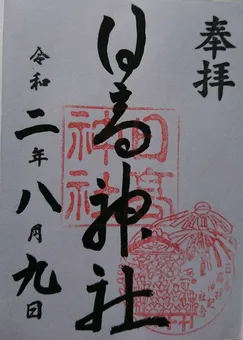 奉拝
日高神社
令和二年八月九日
日高
神社